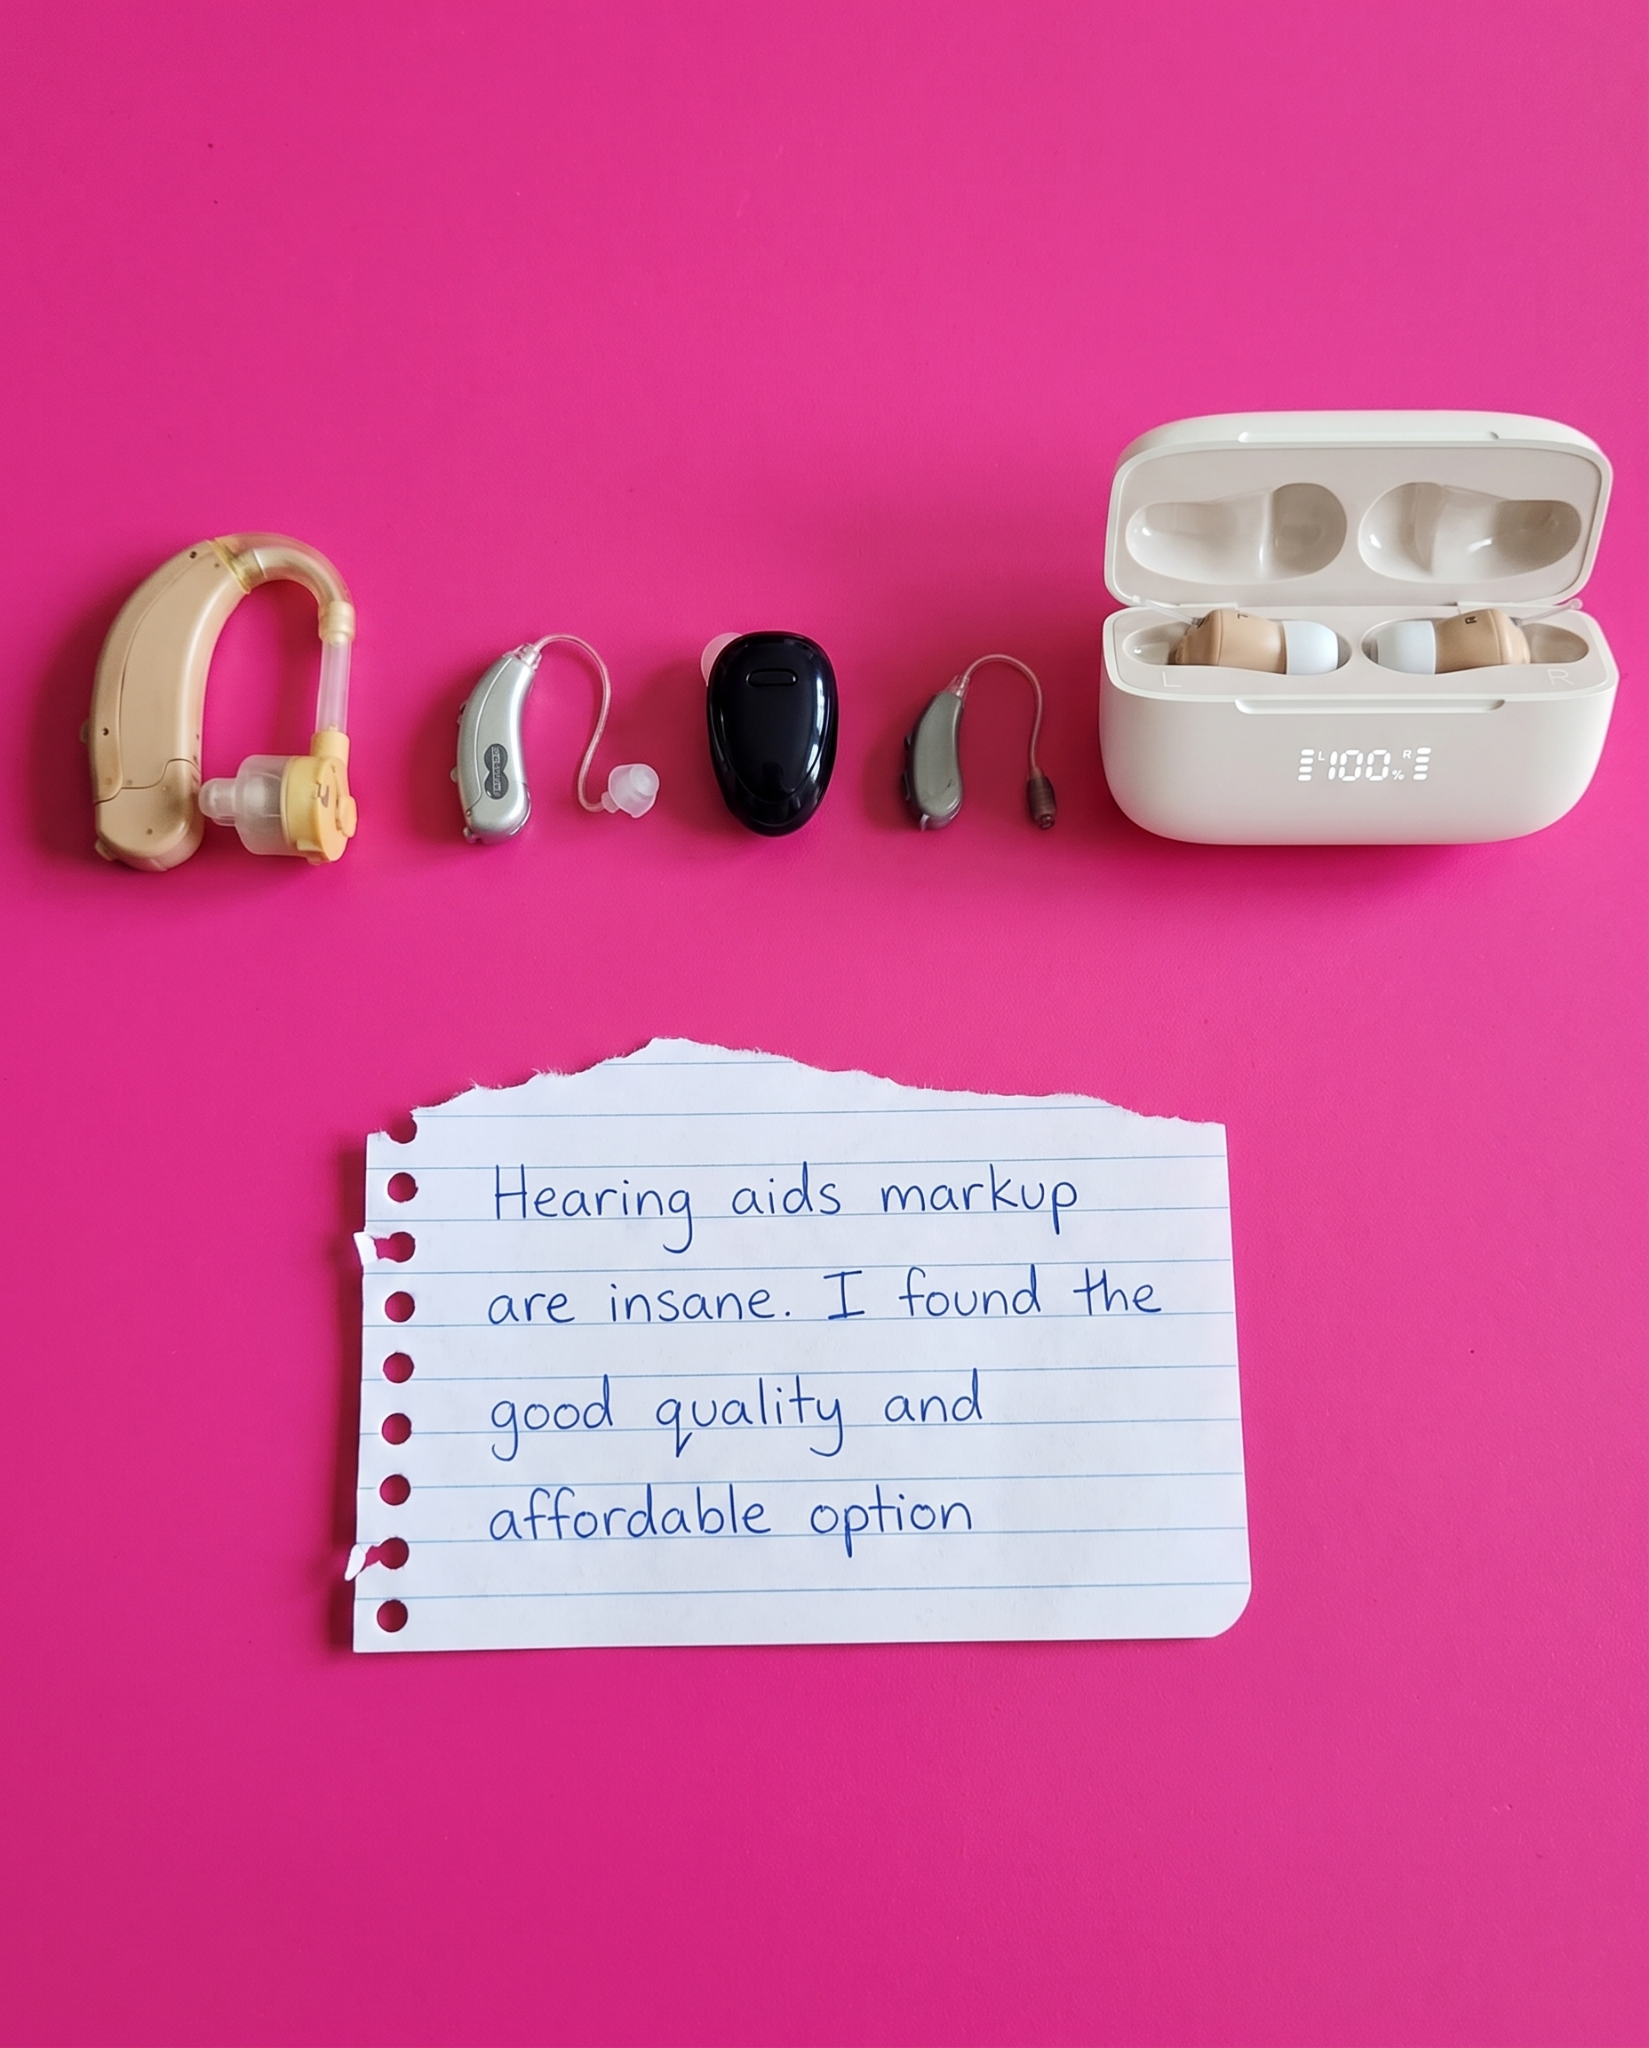 L 100% R
L R
Hearing aids markup
are insane. I found the
good quality and
affordable option